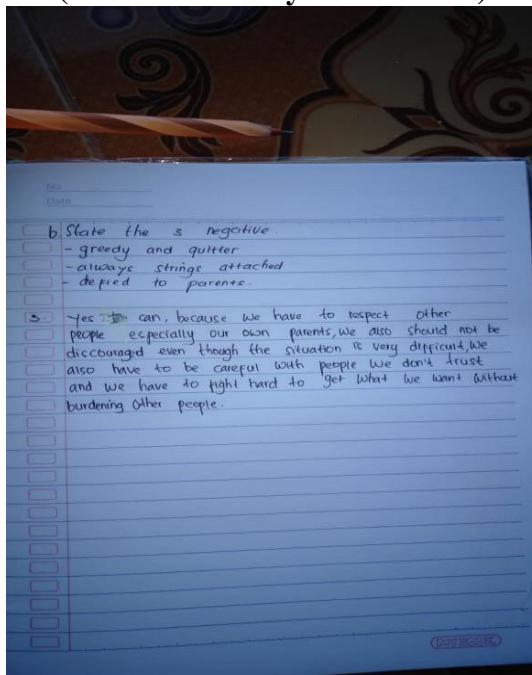 No
Date
b. State the 3 negative.
- greedy and quitter
- always strings attached
- defied to parents.
3. Yes can, because we have to respect other
people especially our own parents, we also should not be
discouraged even though the situation is very difficult, we
also have to be careful with people we don't trust
and we have to fight hard to get what we want without
burdening other people.